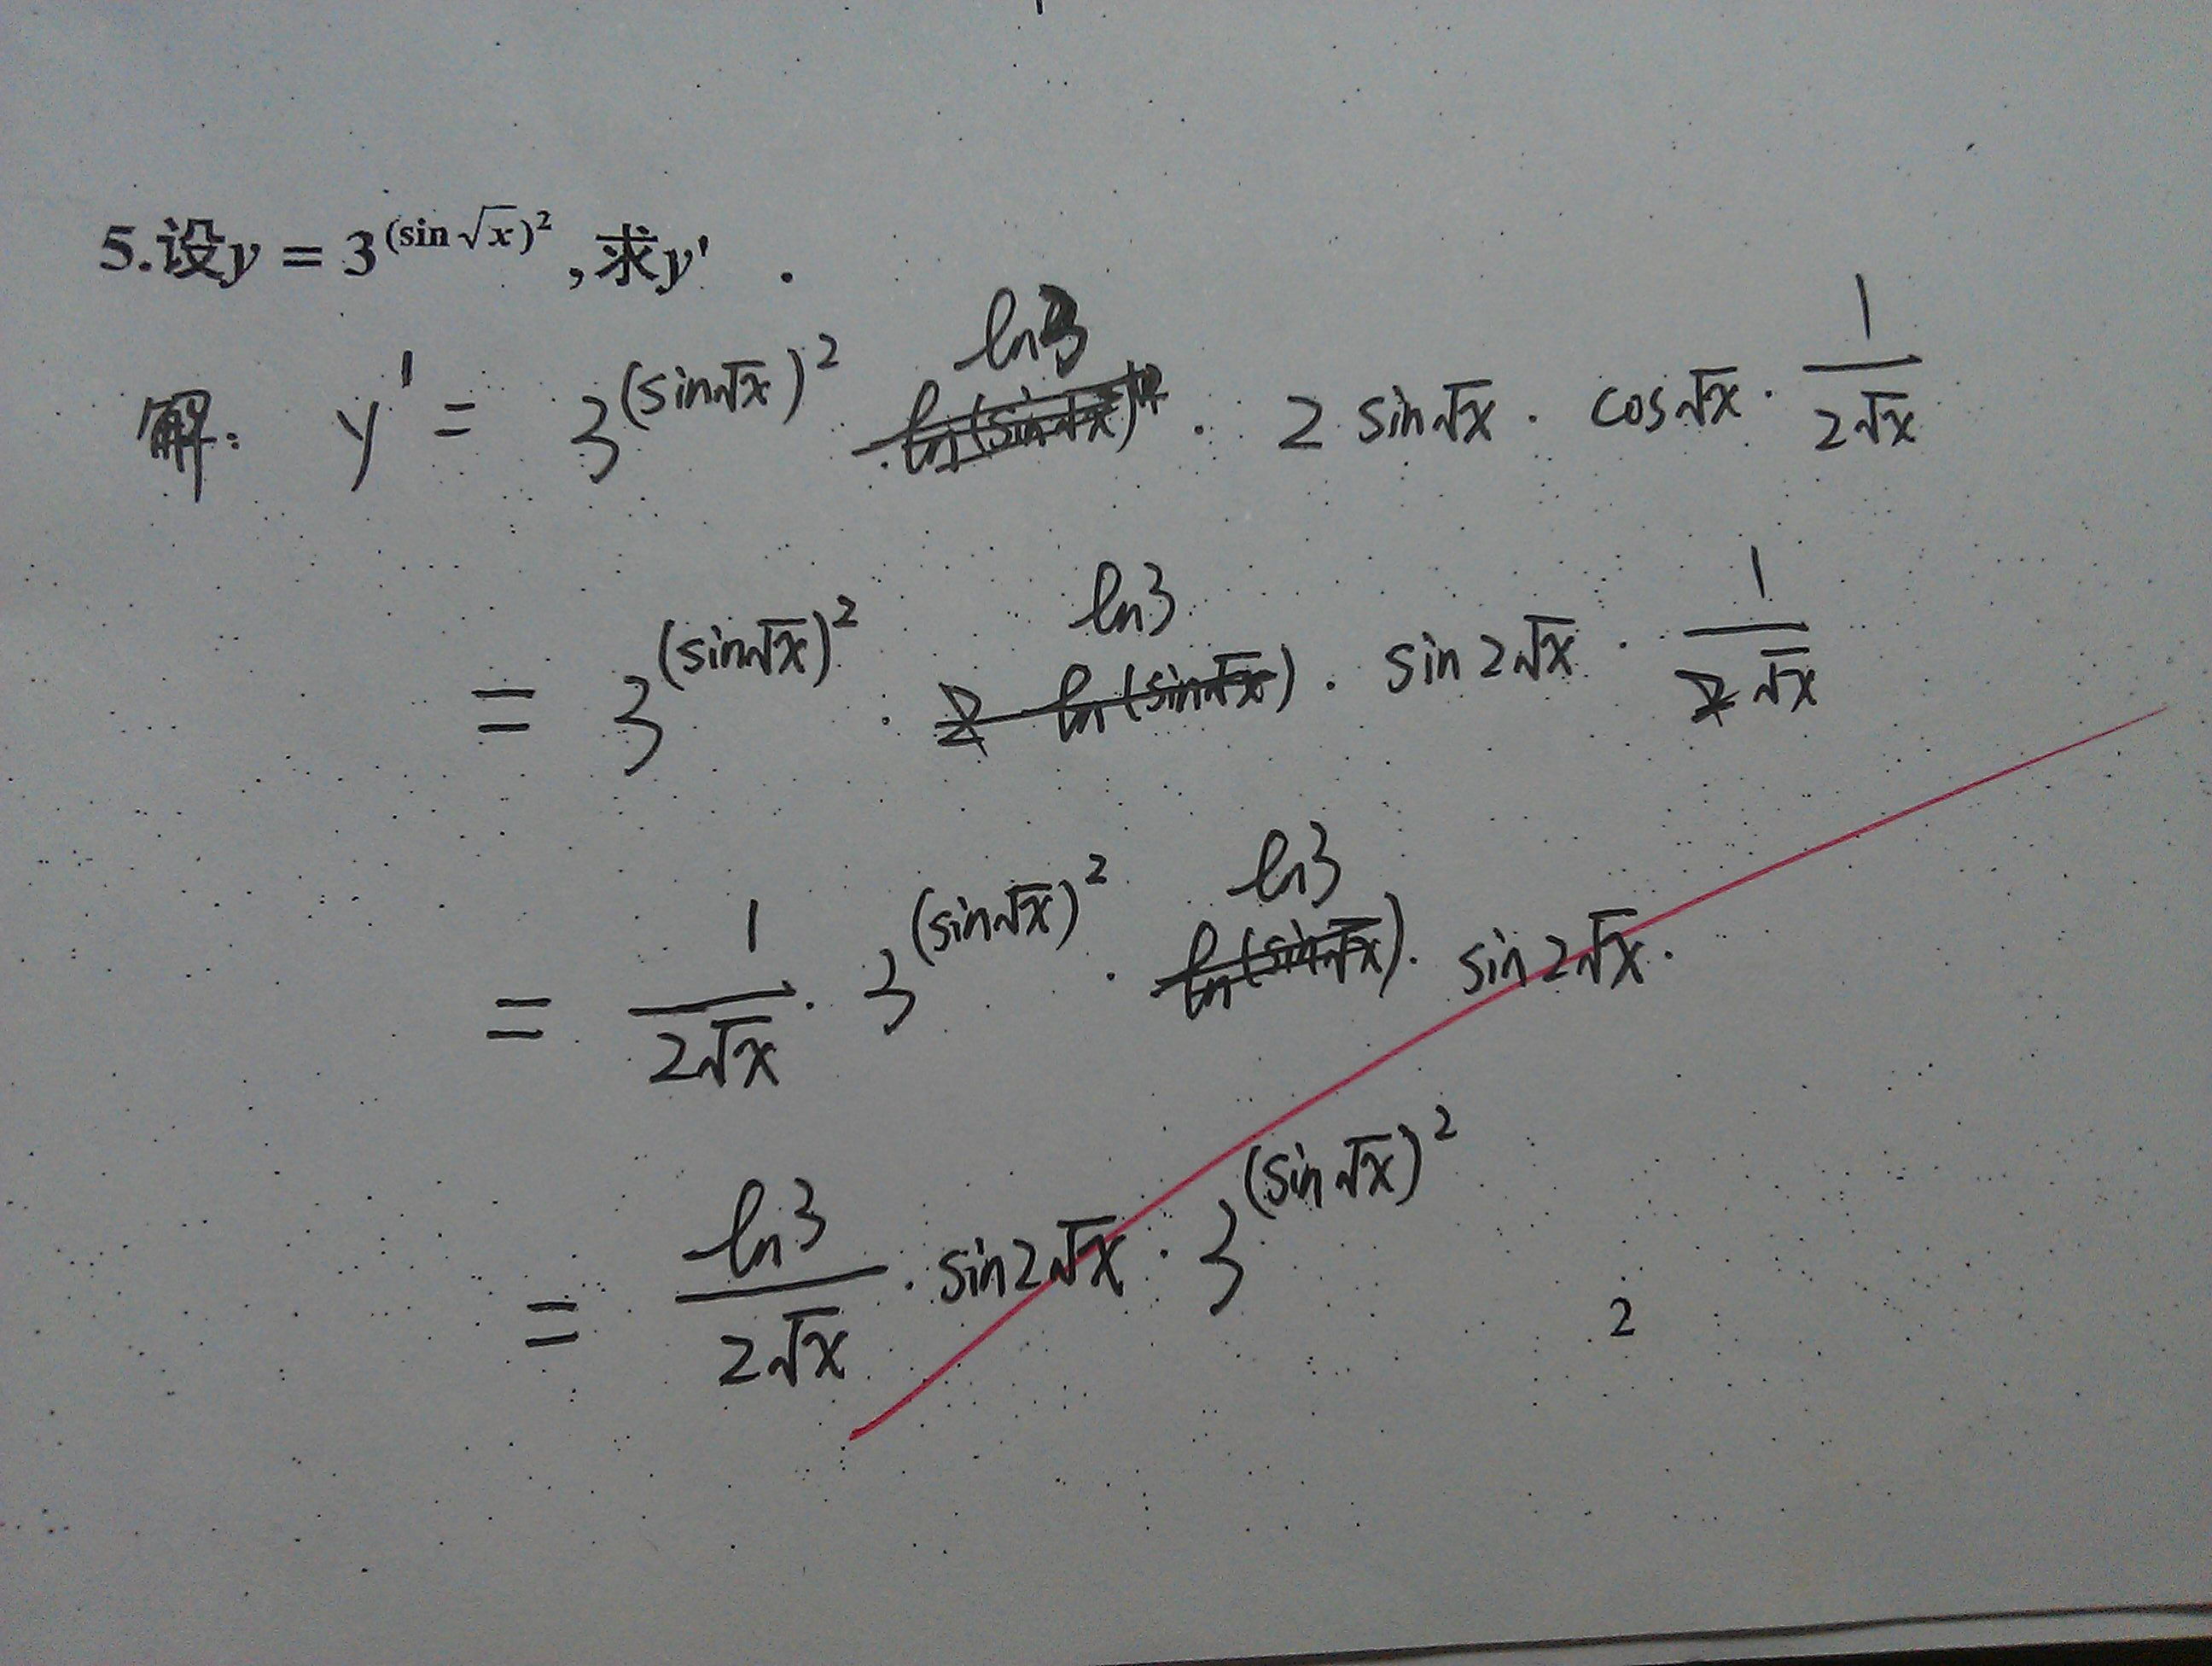 5.设y = 3^(sin√x)², 求y' .
解: y' = 3^(sin√x)² ln3 · 2 sin√x · cos√x · 1/(2√x)
= 3^(sin√x)² · ln3 · sin2√x · 1/(2√x)
= 1/(2√x) · 3^(sin√x)² · ln3 · sin2√x.
= ln3/(2√x) · sin2√x · 3^(sin√x)²
2